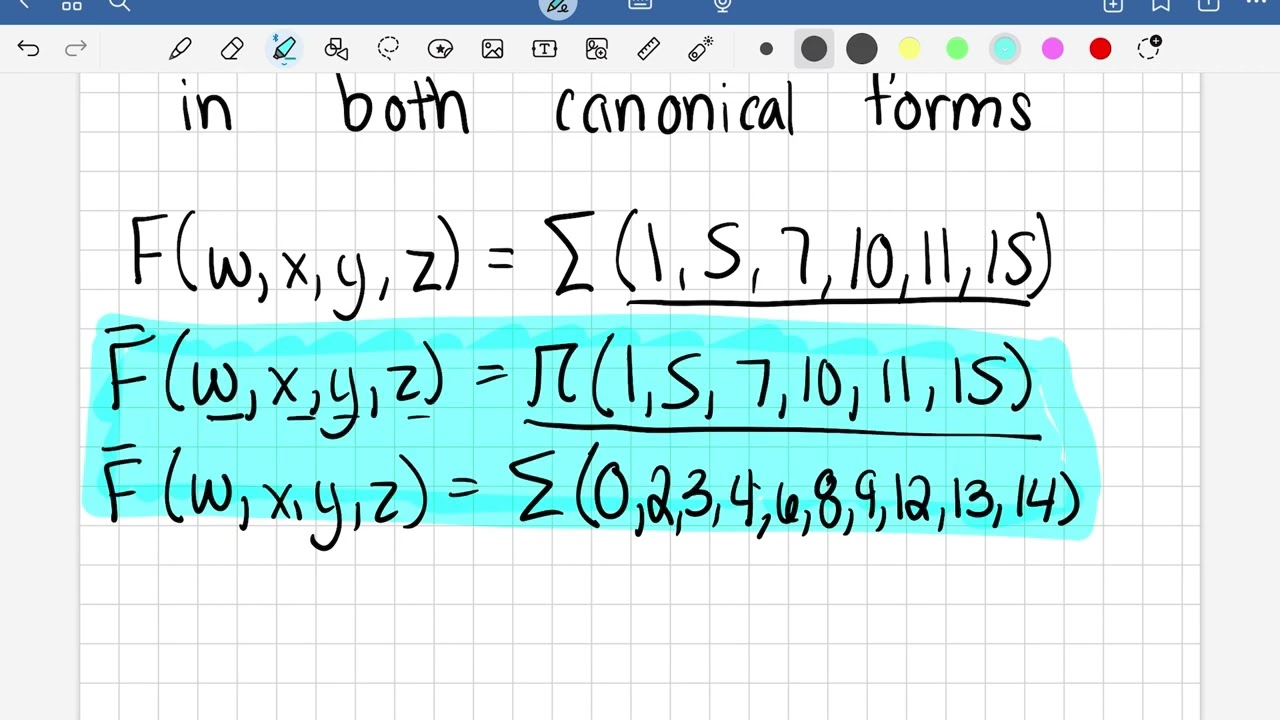 in both canonical forms
F(w,x,y,z) = Σ(1,5,7,10,11,15)
F̅(w,x,y,z) = Π(1,5,7,10,11,15)
F̅(w,x,y,z) = Σ(0,2,3,4,6,8,9,12,13,14)